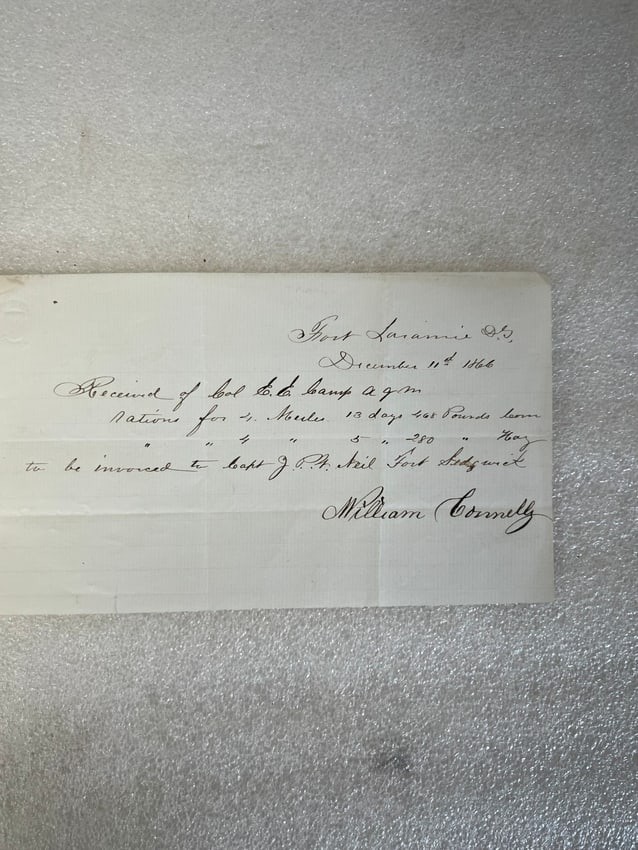 Fort Laramie D.T.
December 11th 1866
Received of Col E. E. Camp A Q M
rations for 4 Mules 13 days 468 Pounds Corn
" " 4 " 5 " 280 " Hay
to be invoiced to Capt J. P. W. Neil Fort Sedgwick
William Connelly